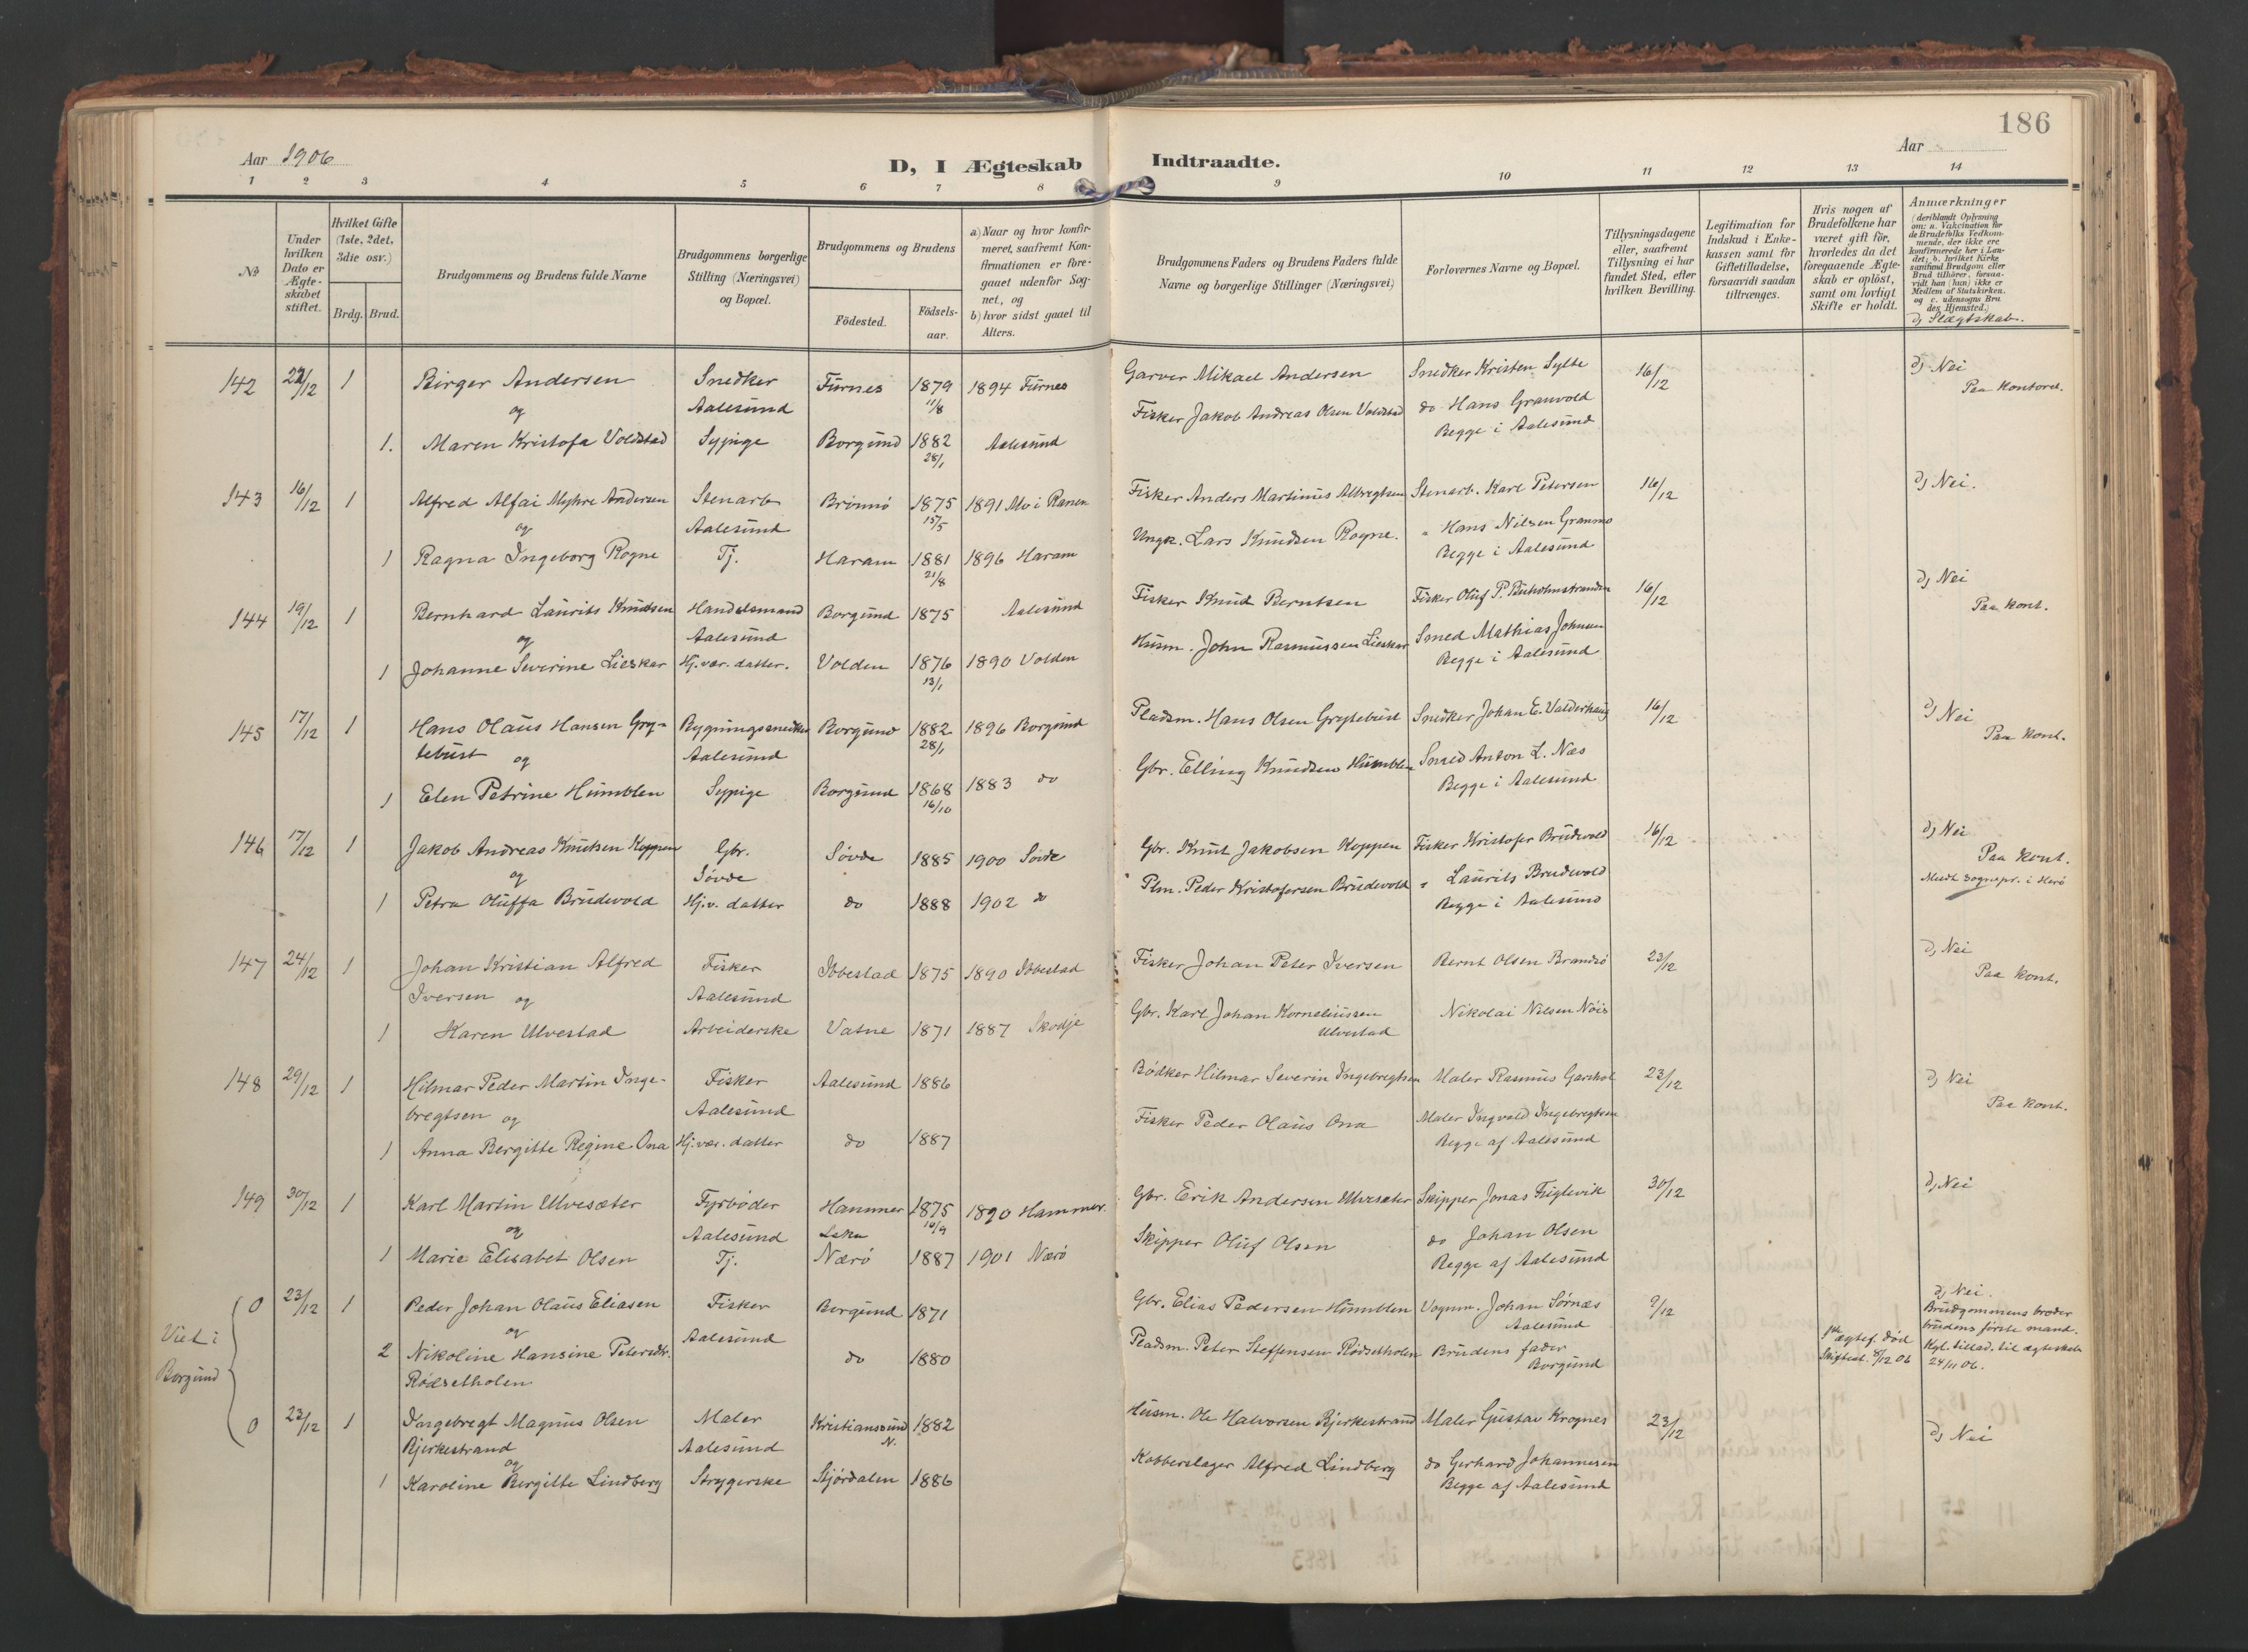 186
Aar 1906
D, I Ægteskab Indtraadte.
Aar
1 2 3 4 5 6 7 8 9 10 11 12 13 14
No
Under hvilken Dato er Ægteskabet stiftet.
Hvilket Gifte (1ste, 2det, 3die osv.)
Brdg. Brud.
Brudgommens og Brudens fulde Navne
Brudgommens borgerlige Stilling (Næringsvei) og Bopæl.
Brudgommens og Brudens
Födested.
Födselsaar.
a) Naar og hvor konfirmeret, saafremt Konfirmationen er foregaaet udenfor Sognet, og b) hvor sidst gaaet til Alters.
Brudgommens Faders og Brudens Faders fulde Navne og borgerlige Stillinger (Næringsvei)
Forlovernes Navne og Bopæl.
Tillysningsdagene eller, saafremt Tillysning ei har fundet Sted, efter hvilken Bevilling.
Legitimation for Indskud i Enkekassen samt for Giftetilladelse, forsaavidt saadan tiltrænges.
Hvis nogen af Brudefolkene har været gift för, hvorledes da det foregaaende Ægteskab er oplöst, samt om lovligt Skifte er holdt.
Anmærkninger (deriblandt Oplysning om: a. Vakcination for de Brudefolks Vedkommende, der ikke ere konfirmerede her i Landet; b. hvilket Kirkesamfund Brudgom eller Brud tilhörer, forsaavidt han (hun) ikke er Medlem af Statskirken. og c. udensogns Brudes Hjemsted.)
d) Slægtskab.
142 22/12 1 Birger Andersen Snedker Furnes 1879 1894 Furnes Garver Mikael Andersen Snedker Kristen Sylte 16/12 d) Nei
og Aalesund 11/8 Fisker Jakob Andreas Olsen Voldstad do Hans Granvold Paa Kontoret.
1. Maren Kristofa Voldstad Sypige Borgund 1882 Aalesund Begge i Aalesund
28/1
143 16/12 1 Alfred Alfai Myhre Andersen Stenarb Brönnö 1875 1891 Mo i Ranen Fisker Anders Martinus Albregtsen Stenarb. Karl Petersen 16/12 d) Nei.
og Aalesund 15/5 Ungk. Lars Knudsen Rogne. " Hans Nilsen Granmo
1 Ragna Ingeborg Rogne Tj. Haram 1881 1896 Haram Begge i Aalesund
21/8
144 19/12 1 Bernhard Laurits Knudsen Handelsmand Borgund 1875 Aalesund Fisker Knud Berntsen Fisker Oluf P. Buholmstranden 16/12 d) Nei
og Aalesund Husm. John Rasmussen Lieskar Smed Mathias Johnsen Paa kont.
1 Johanne Severine Lieskar Hj.vær. datter. Volden 1876 1890 Volden Begge i Aalesund
13/1
145 17/12 1 Hans Olaus Hansen Gry- Bygningssnedker Borgund 1882 1896 Borgund Pladsm. Hans Olsen Grytebust Snedker Johan E. Valderhaug 16/12 d) Nei
tebust og Aalesund 28/1 Gbr. Elling Knudsen Humblen Smed Anton L. Næs Paa kont.
1 Elen Petrine Humblen Sypige Borgund 1868 1883 do Begge i Aalesund
16/10
146 17/12 1 Jakob Andreas Knutsen Koppen Gbr. Søvde 1885 1900 Søvde Gbr. Knut Jakobsen Koppen Fisker Kristofer Brudevold 16/12 d) Nei
og Søvde Plm. Peder Kristofersen Brudevold " Laurits Brudevold Paa kont.
1 Petra Oluffa Brudevold Hj.v. datter do 1888 1902 do Begge i Aalesund Medt sognepr. i Herö
147 24/12 1 Johan Kristian Alfred Fisker Ibbestad 1875 1890 Ibbestad Fisker Johan Peter Iversen Bernt Olsen Brandsö 23/12 d) Nei
Iversen og Aalesund Gbr. Karl Johan Korneliussen Nikolai Nilsen Nöis Paa kont.
1 Karen Ulvestad Arbeiderske Vatne 1871 1887 Skodje Ulvestad
148 29/12 1 Hilmar Peder Martin Inge- Fisker Aalesund 1886 Bødker Hilmar Severin Ingebregtsen Maler Rasmus Garshol 23/12 d) Nei
bregtsen og Aalesund Fisker Peder Olaus Ona Maler Ingvald Ingebregtsen Paa kont.
1 Anna Bergitte Regine Ona Hj.vær. datter do 1887 Begge af Aalesund
149 30/12 1 Karl Martin Ulvesæter Fyrbøder Hammer 1875 1890 Hammer. Gbr. Erik Andersen Ulvesæter Skipper Jonas Fuglevik 30/12 d) Nei
og Aalesund Leka 10/9 Skipper Oluf Olsen do Johan Olsen
1 Marie Elisabet Olsen Tj. Nærö 1887 1901 Nærö Begge af Aalesund
Viet i Borgund
0 23/12 1 Peder Johan Olaus Eliasen Fisker Borgund 1871 Gbr. Elias Pedersen Humblen Vognm. Johan Sörnæs 9/12 d) Nei.
og Aalesund Aalesund Brudgommens broder
2 Nikoline Hansine Petersdtr. do 1880 Pladsm. Peter Steffensen Rødsetholen Brudens fader ægtef. død brudens første mand.
Rødsetholen Borgund Skifteat. 8/12 06 Kgl. tillad. til ægteskab 24/11 06.
0 23/12 1 Ingebregt Magnus Olsen Maler Kristianssund N. 1882 Husm. Ole Halvorsen Bjerkestrand Maler Gustav Krognes 23/12 d) Nei
Bjerkestrand og Aalesund Kobberslager Alfred Lindberg do Gerhard Johannesen
1 Karoline Bergitte Lindberg Strygerske Stjördalen 1886 Begge af Aalesund